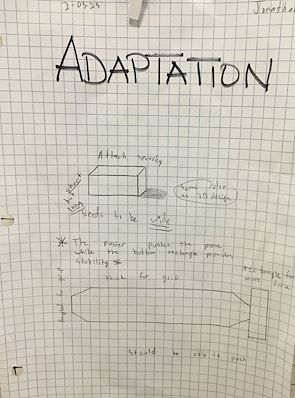 2-03-25
Jonathan
ADAPTATION
Attach securely
short
long
Needs to be wide
as 3D design
* The pusher pushes the
while the bottom rectangle provides
stability *
thick for grip
rectangle for
more force
should be able to push